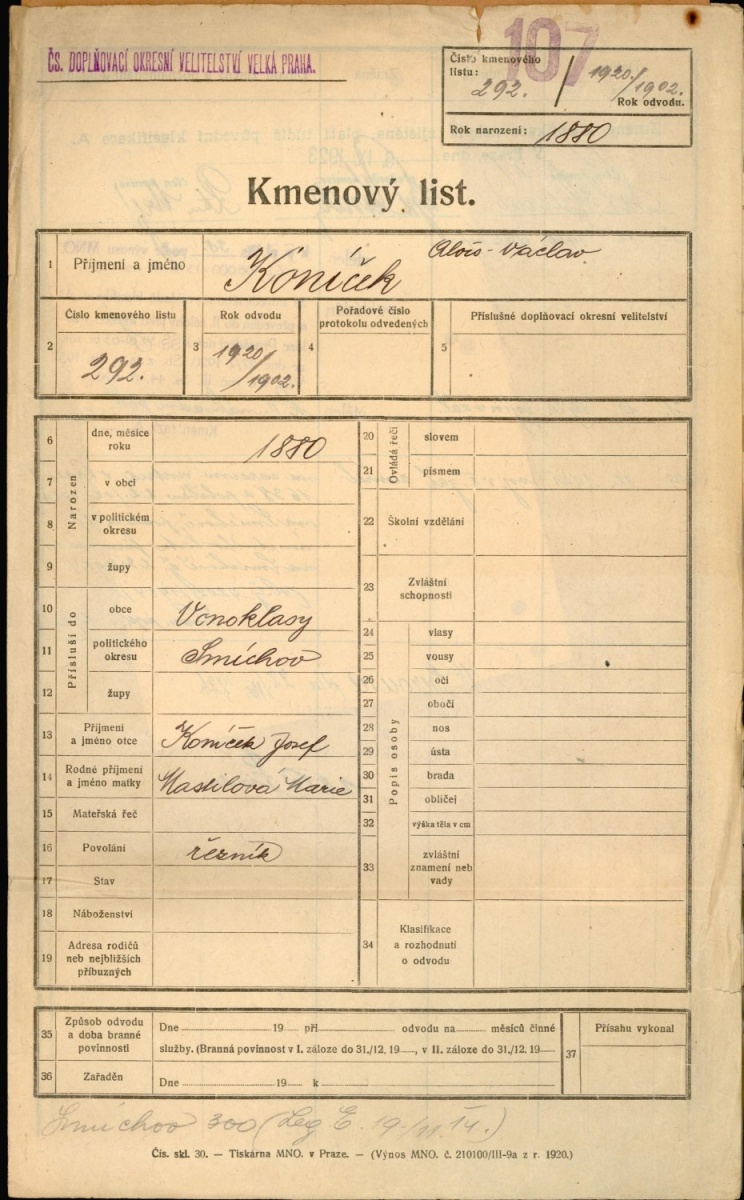 107
ČS. DOPLŇOVACÍ OKRESNÍ VELITELSTVÍ VELKÁ PRAHA.
Číslo kmenového
listu: 292. / 1920./1902.
Rok odvodu.
Rok narození: 1880
Kmenový list.
1 Příjmení a jméno Kóníček Alois-Václav
2 Číslo kmenového listu 292.
3 Rok odvodu 1920/1902.
4 Pořadové číslo
protokolu odvedených
5 Příslušné doplňovací okresní velitelství
Narozen
6 dne, měsíce
roku 1880
7 v obci
8 v politickém
okresu
9 župy
Přísluší do
10 obce Vonoklasy
11 politického
okresu Smíchov
12 župy
13 Příjmení
a jméno otce Koníček Josef
14 Rodné příjmení
a jméno matky Mastilová Marie
15 Mateřská řeč
16 Povolání řezník
17 Stav
18 Náboženství
19 Adresa rodičů
neb nejbližších
příbuzných
Ovládá řeči
20 slovem
21 písmem
22 Školní vzdělání
23 Zvláštní
schopnosti
Popis osoby
24 vlasy
25 vousy
26 oči
27 obočí
28 nos
29 ústa
30 brada
31 obličej
32 výška těla v cm
33 zvláštní
znamení neb
vady
34 Klasifikace
a rozhodnutí
o odvodu
35 Způsob odvodu
a doba branné
povinnosti
Dne 19 při odvodu na měsíců činné
služby. (Branná povinnost v I. záloze do 31./12. 19 , v II. záloze do 31./12. 19
36 Zařaděn
Dne 19 k
37 Přísahu vykonal
Smíchov 300 (Leg E. 19/11. 14.)
Čís. skl. 30. — Tiskárna MNO. v Praze. — (Výnos MNO. č. 210100/III-9a z r. 1920.)